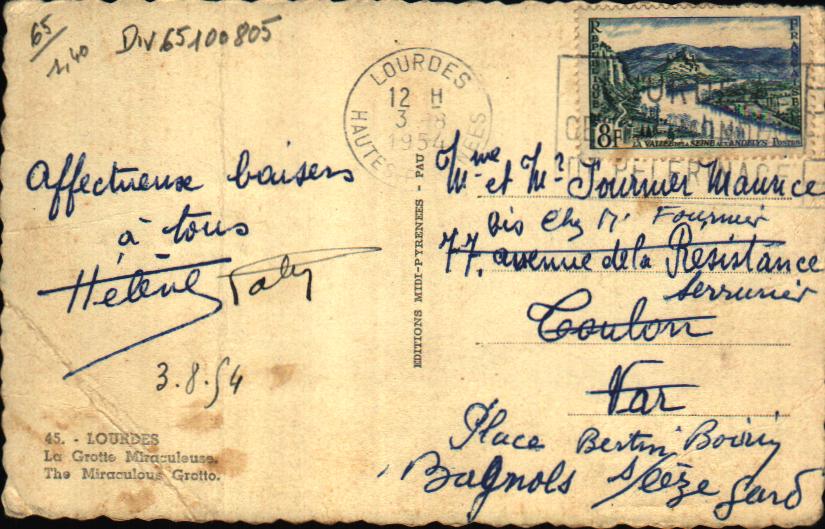 65
1,40
Div65100805
LOURDES
12 H
3 - 8
1954
HAUTES PYRENEES
REPUBLIQUE FRANÇAISE
8F
LA VALLÉE DE LA SEINE AUX ANDELYS POSTES
PELERINAGE
Affectueux baisers
à tous
Hélène
3.8.54
45. - LOURDES
La Grotte Miraculeuse.
The Miraculous Grotto.
EDITIONS MIDI-PYRENEES - PAU
Mme et Mr Fournier Maurice
Chez Mr Fournier
77, avenue de la Résistance
Serrurier
Toulon
Var
Place Bertin Boissin
Bagnols s/Cèze Gard